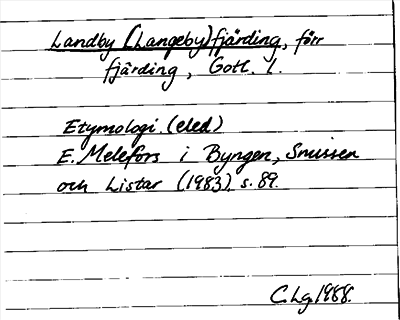 Landby (Langeby)fjärding, förr
fjärding, Gotl. l.
Etymologi (eled)
E. Melefors i Byngen, Snussen
och Listar (1983) s. 89.
C.Lg 1988.